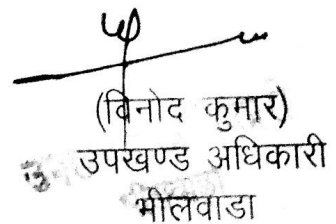 (विनोद कुमार)
उपखण्ड अधिकारी
भीलवाडा